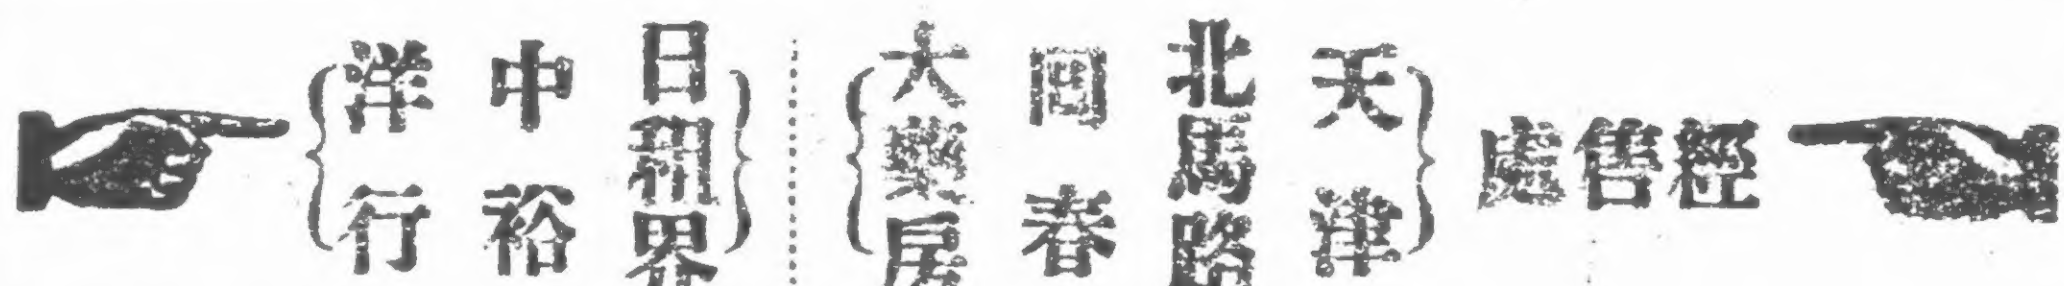 經售處
天津
北馬路
同春
大藥房
日租界
中裕
洋行